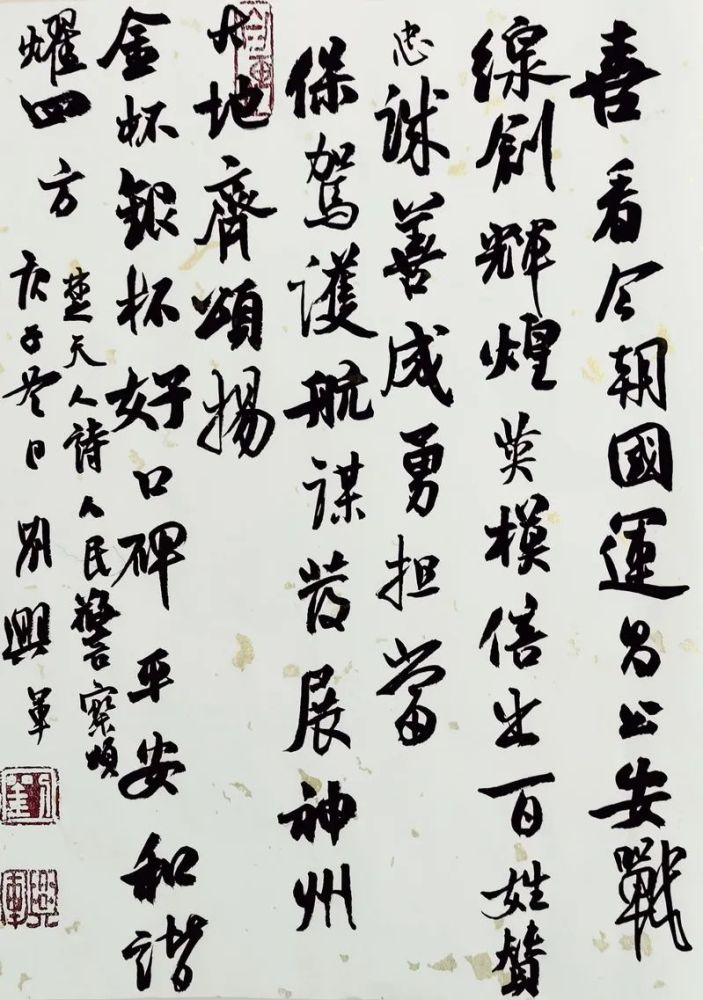 喜看今朝國運昌公安戰
線創輝煌英模倍出百姓贊
忠誠善成勇担當
保駕護航謀發展神州
大地齊頌揚
金杯銀杯好口碑平安和諧
耀四方
楚天人詩人民警察頌
庚子冬日劉興軍